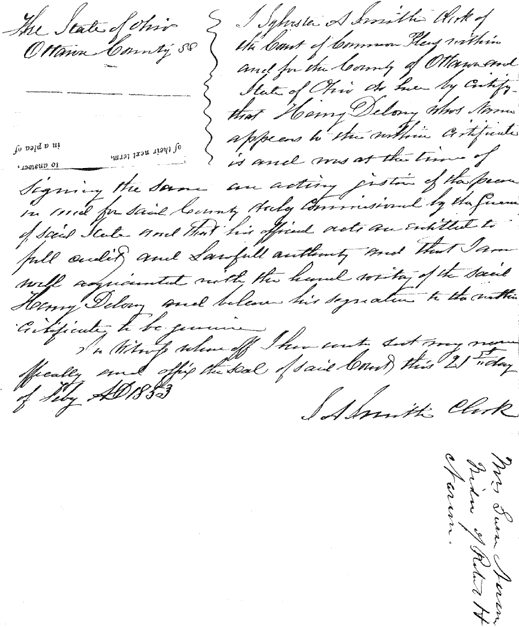 The State of Ohio
Ottawa County SS
I Sylvester A Smith Clerk of
the Court of Common Pleas within
and for the County of Ottawa and
State of Ohio do here by certify
that Henry Delony whos Name
appears to the within Certificate
is and was at the time of
signing the same an acting justice of the peace
in and for said County duly commissioned by the
of said State and that his official acts are entitled to
full credit and Lawfull authority and that I am
well acquainted with the hand writing of the said
Henry Delony and believe his signature to the within
Certificate to be genuine
In Witness where off I here unto set my name
officially and affix the seal of said Court this 21st day
of Feby AD 1853
S A Smith Clerk
to answer,
in a plea of
of their next term,
Mrs
of Robert H